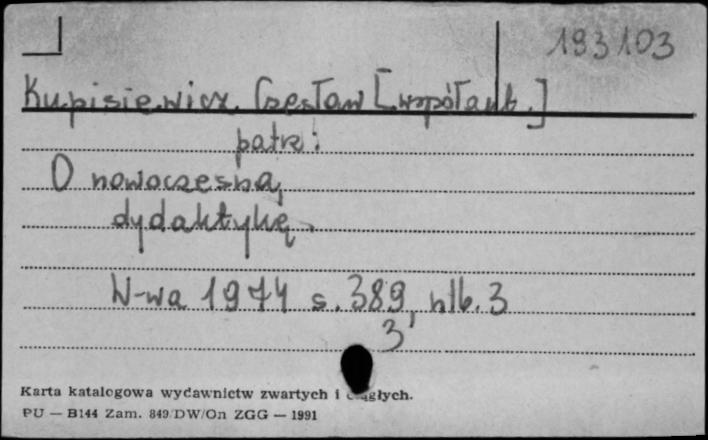 193103
Kupisiewicz Czesław [współaut.]
patrz:
O nowoczesną
dydaktykę.
W-wa 1974 s. 389, nlb. 3
3
Karta katalogowa wydawnictw zwartych i ciągłych.
PU — B144 Zam. 849/DW/On ZGG — 1991